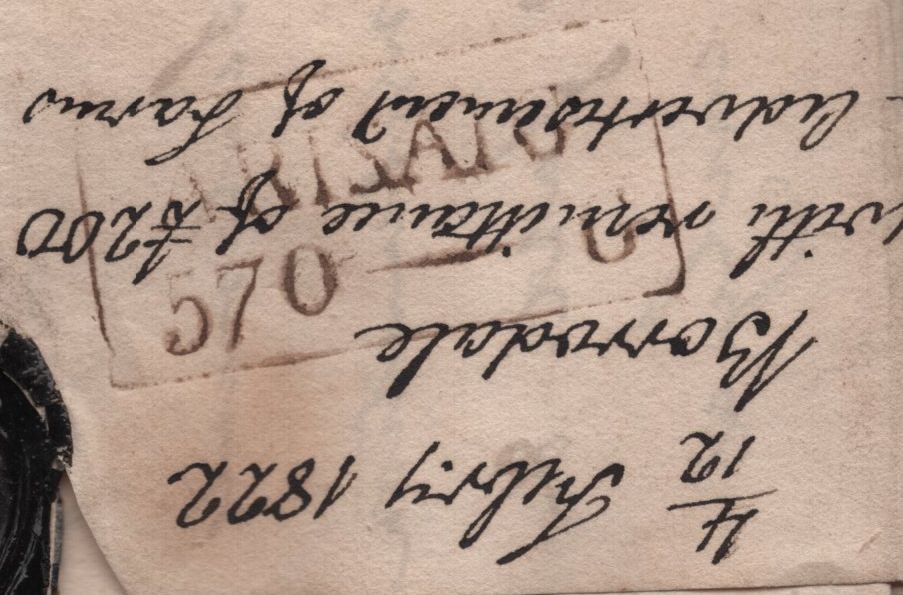 4/12 Febry 1822
Borrodale
with remittance of £200
Advertisement of Farms
ARISAIG
570